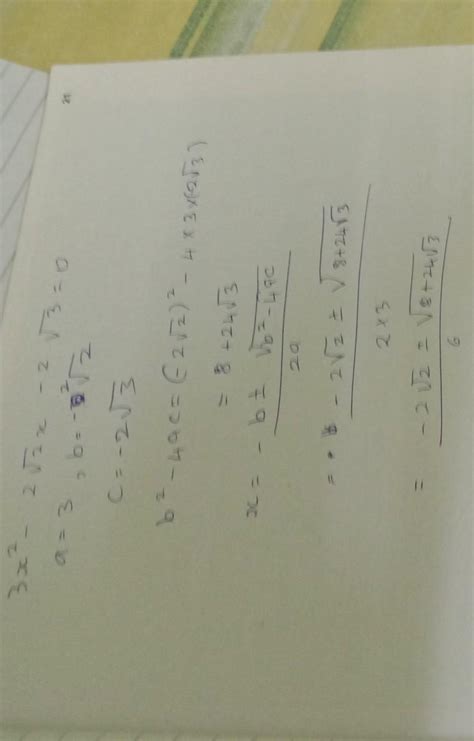 21
3x² - 2√2x - 2√3 = 0
a = 3, b = -2√2
c = -2√3
b² - 4ac = (-2√2)² - 4 × 3 × (-2√3)
= 8 + 24√3
x = -b ± √b² - 4ac
2a
= -2√2 ± √8+24√3
2×3
= -2√2 ± √8+24√3
6